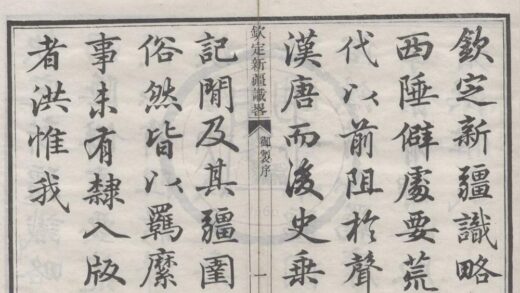 欽定新疆識略
西陲僻處要荒
代以前阻於聲
漢唐而後史乘
欽定新疆識畧
御製序
一
記閒及其疆圉
俗然皆以羈縻
事未有隸入版
者洪惟我